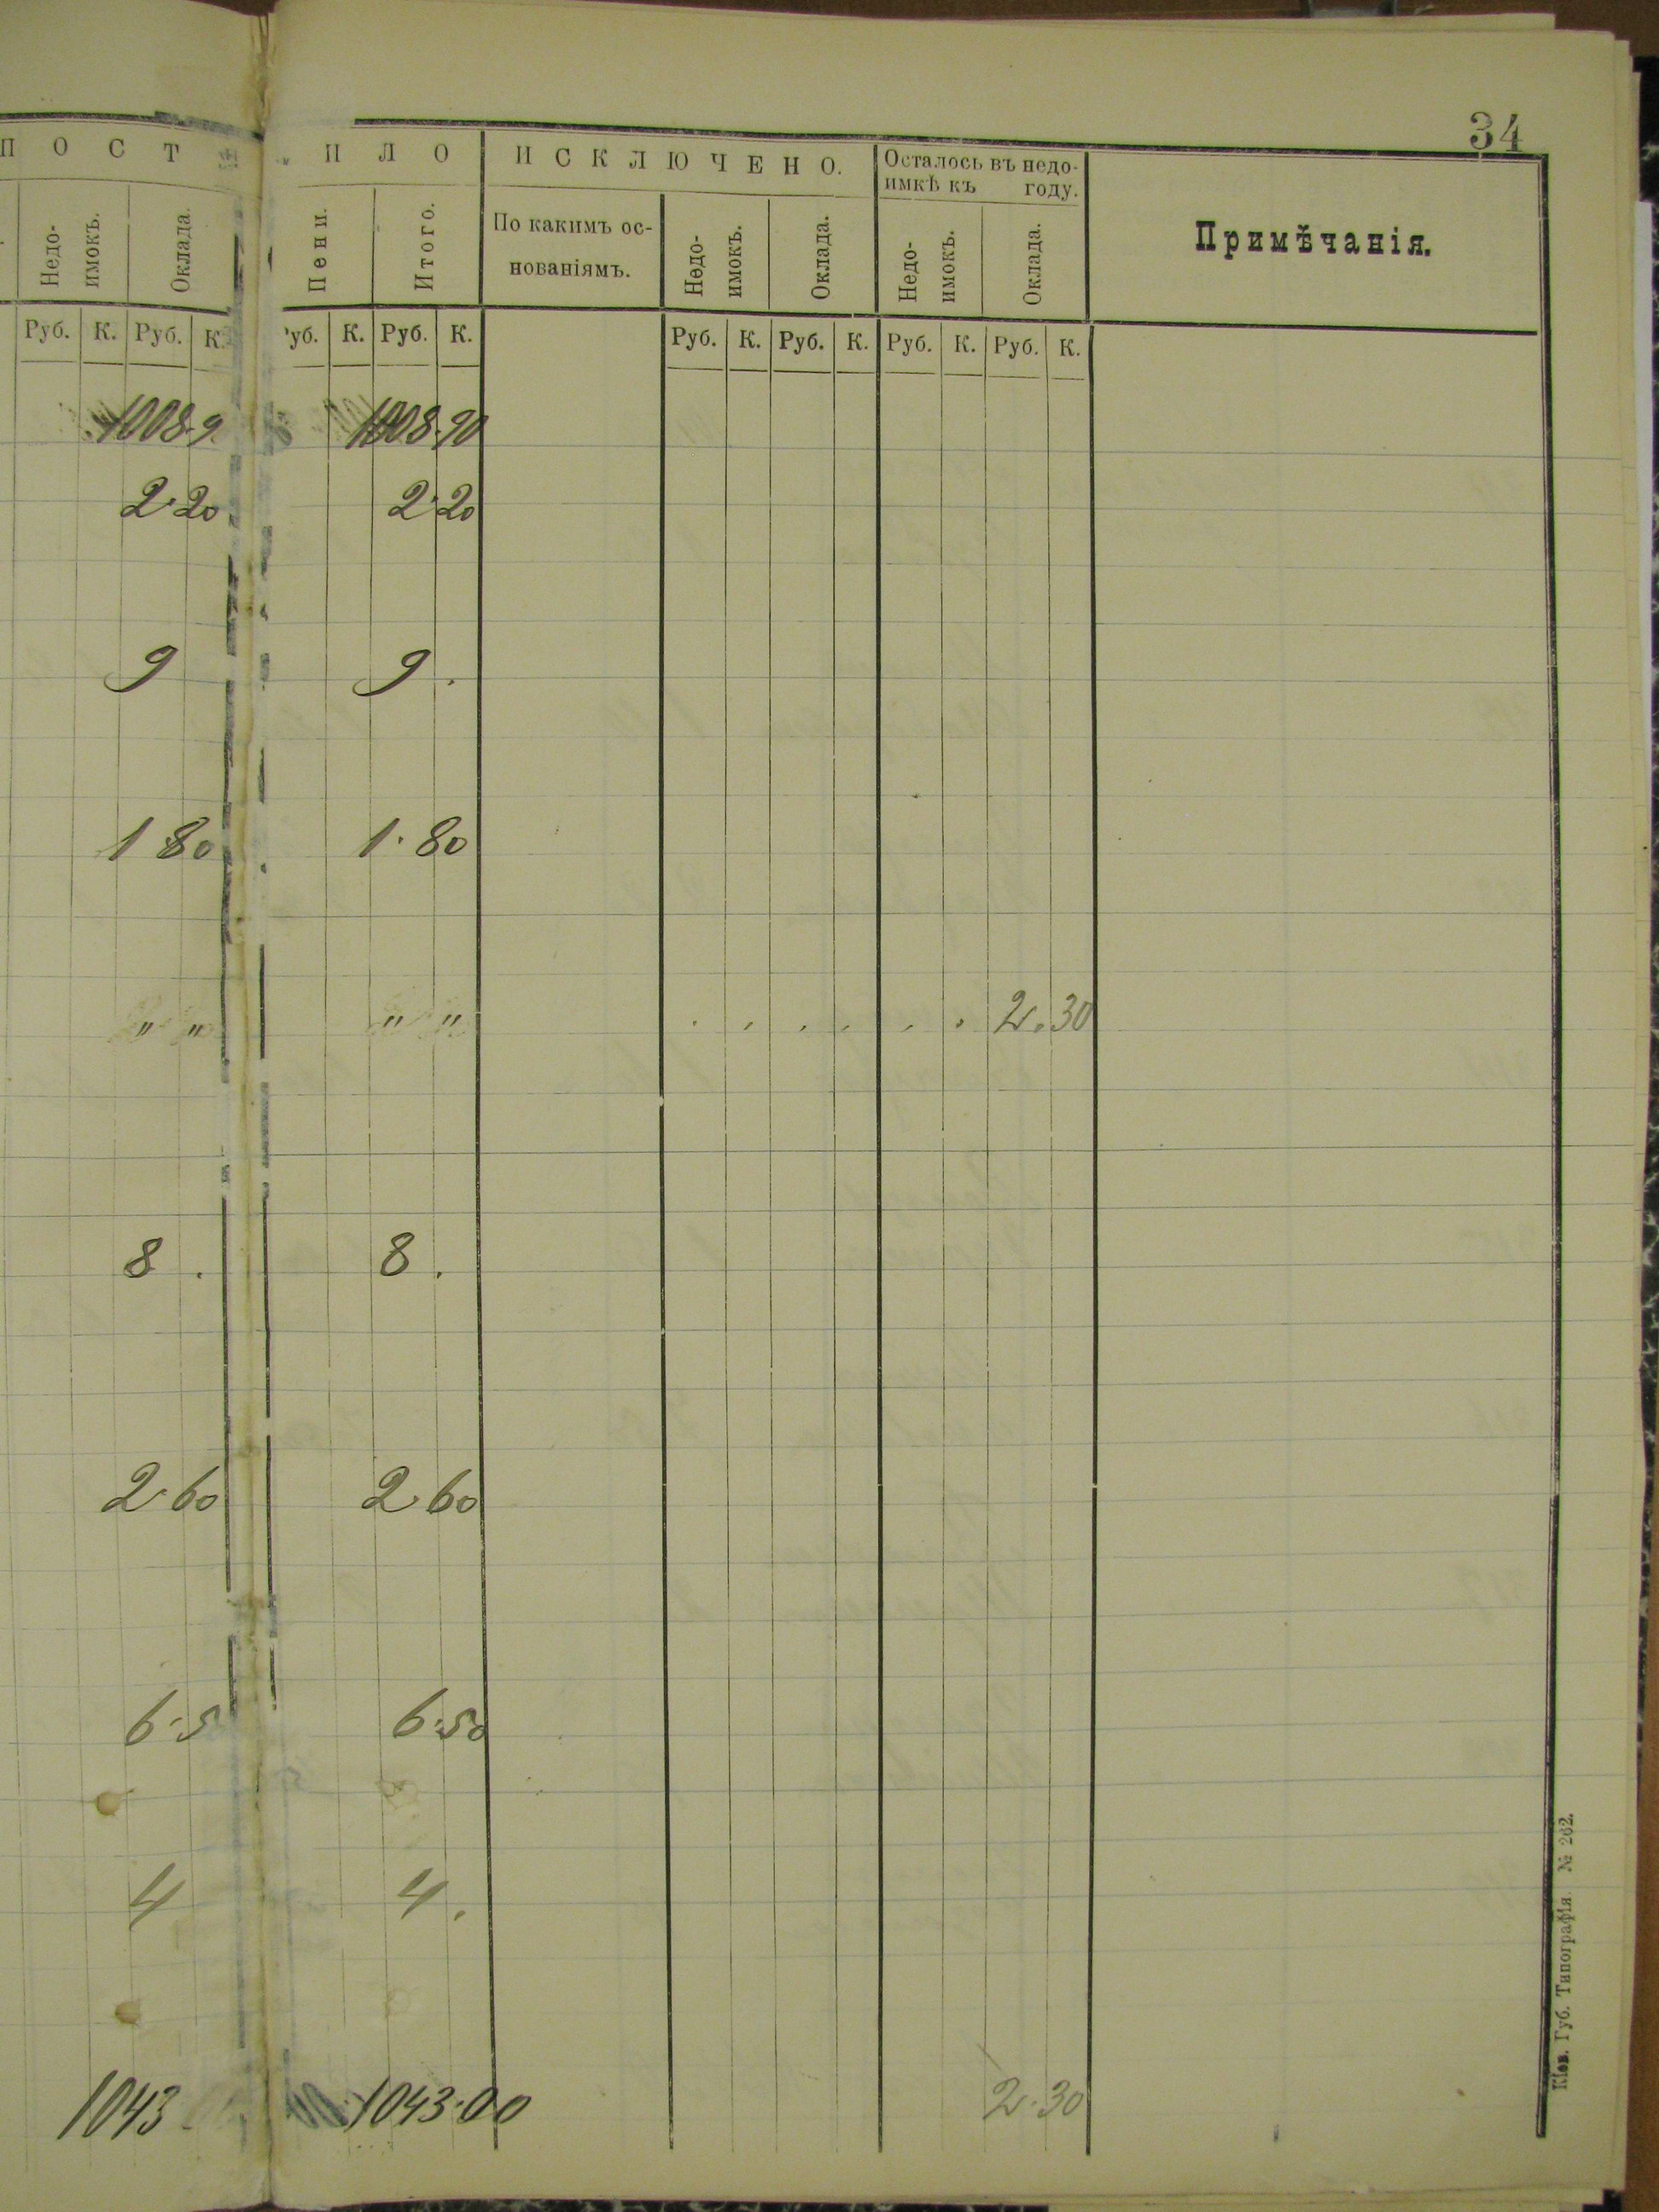 34
ПОСТ ИЛО ИСКЛЮЧЕНО. Осталось въ недо-
имкѣ къ году.
Недо-
имокъ. Оклада. Пени. Итого. По какимъ ос-
нованіямъ. Недо-
имокъ. Оклада. Недо-
имокъ. Оклада. Примѣчанія.
Руб. К. Руб. К. уб. К. Руб. К. Руб. К. Руб. К. Руб. К. Руб. К.
1008.9 1008.90
2.20 2.20
9 9.
1 80 1.80
" " " " . . . . . . 2.30
8 . 8 .
2.60 2.60
6.5 6.50
4 4.
1043 1043.00 2.30
Кіев. Губ. Типографія. № 262.